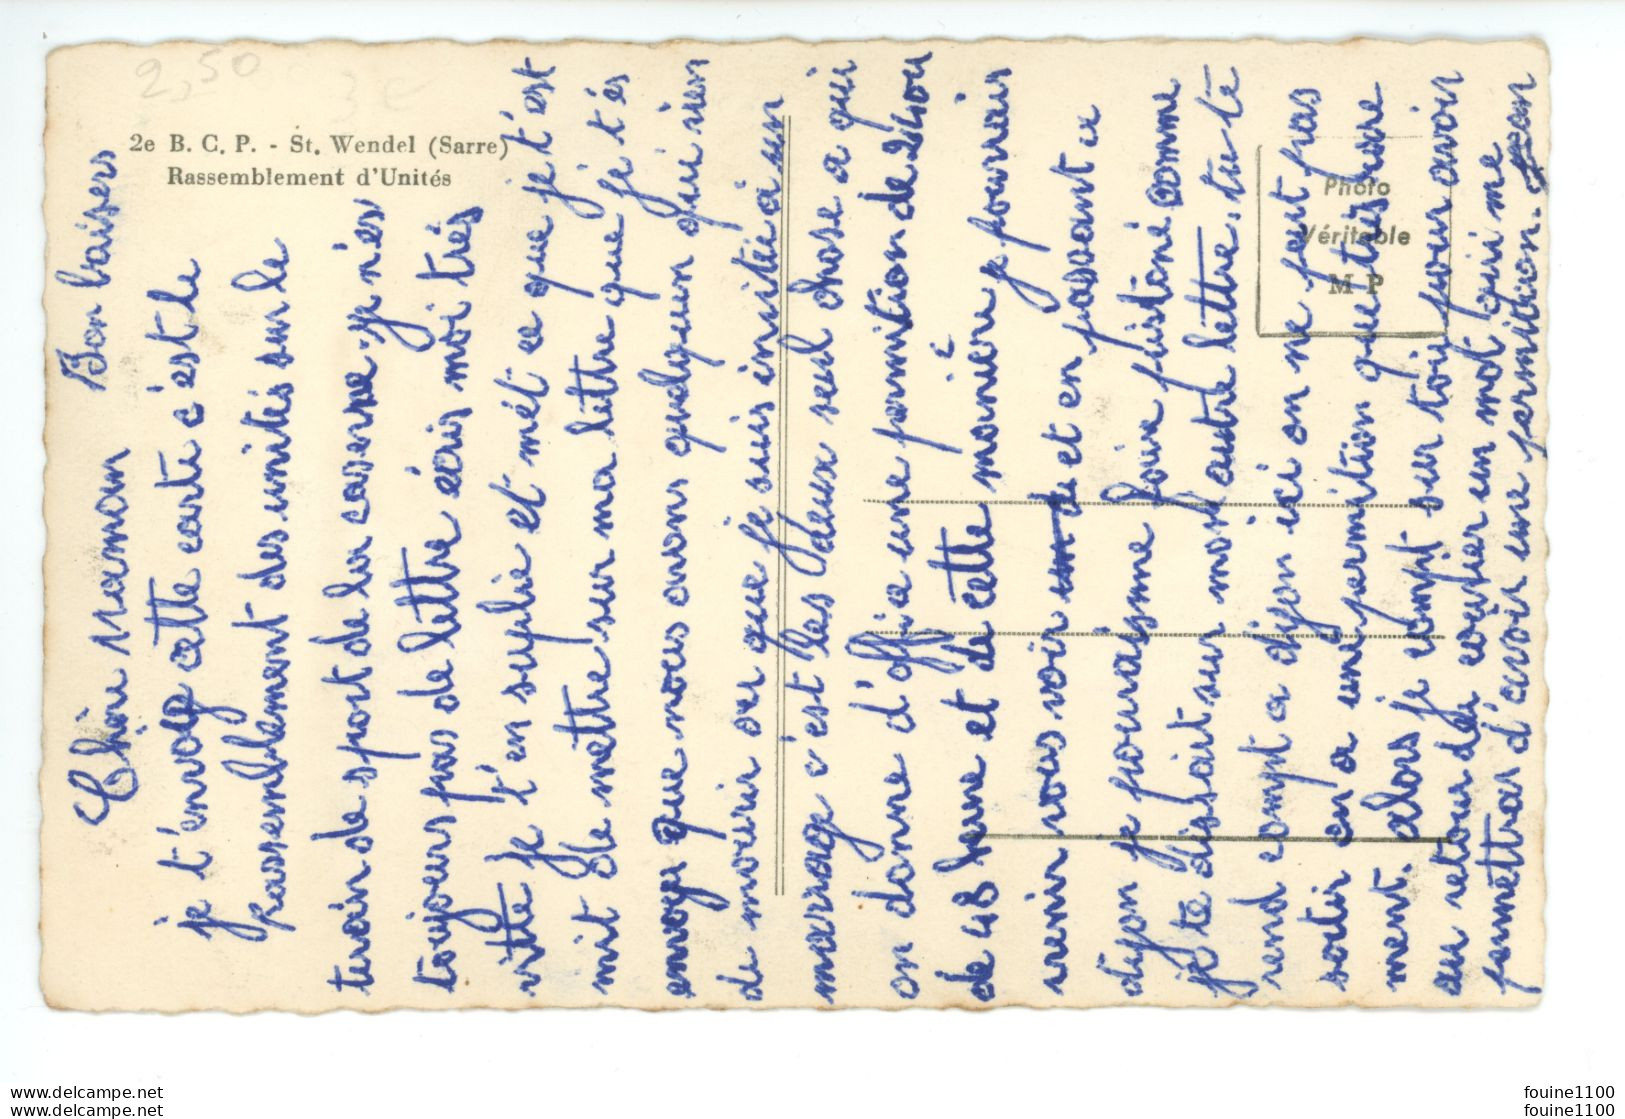 2,50
3 €
2e B. C. P. - St. Wendel (Sarre)
Rassemblement d'Unités
Photo
Véritable
M P
Bon baisers
Chère maman
je t'envoie cette carte c'est le
rassemblement des unités sur le
terain de sport de la caserne. je n'es
toujours pas de lettre écris moi très
vitte je t'en suplie et mét ce que je t'est
mit de mettre sur ma lettre que je t'és
envoyer que nous avons quelquen qui vien
de mourir ou que je suis invitée a un
marriage c'est les deux seul chose a qui
on donne d'offi e une permition de 24 ou
de 48 hune et de cette manière je pourrais
venir vous voir et en passant a
dijon je pourais me faire fuistoné comme
je te dissait sur mon autre lettre. tu te
rend compt a dijon ici on ne peut pas
sortir on a une permition que très rare
ment. alors je compt sur toi pour avoir
au retour du courier un mot qui me
permettra d'avoir une permition. Jean
fouine1100
fouine1100
www.delcampe.net
www.delcampe.net